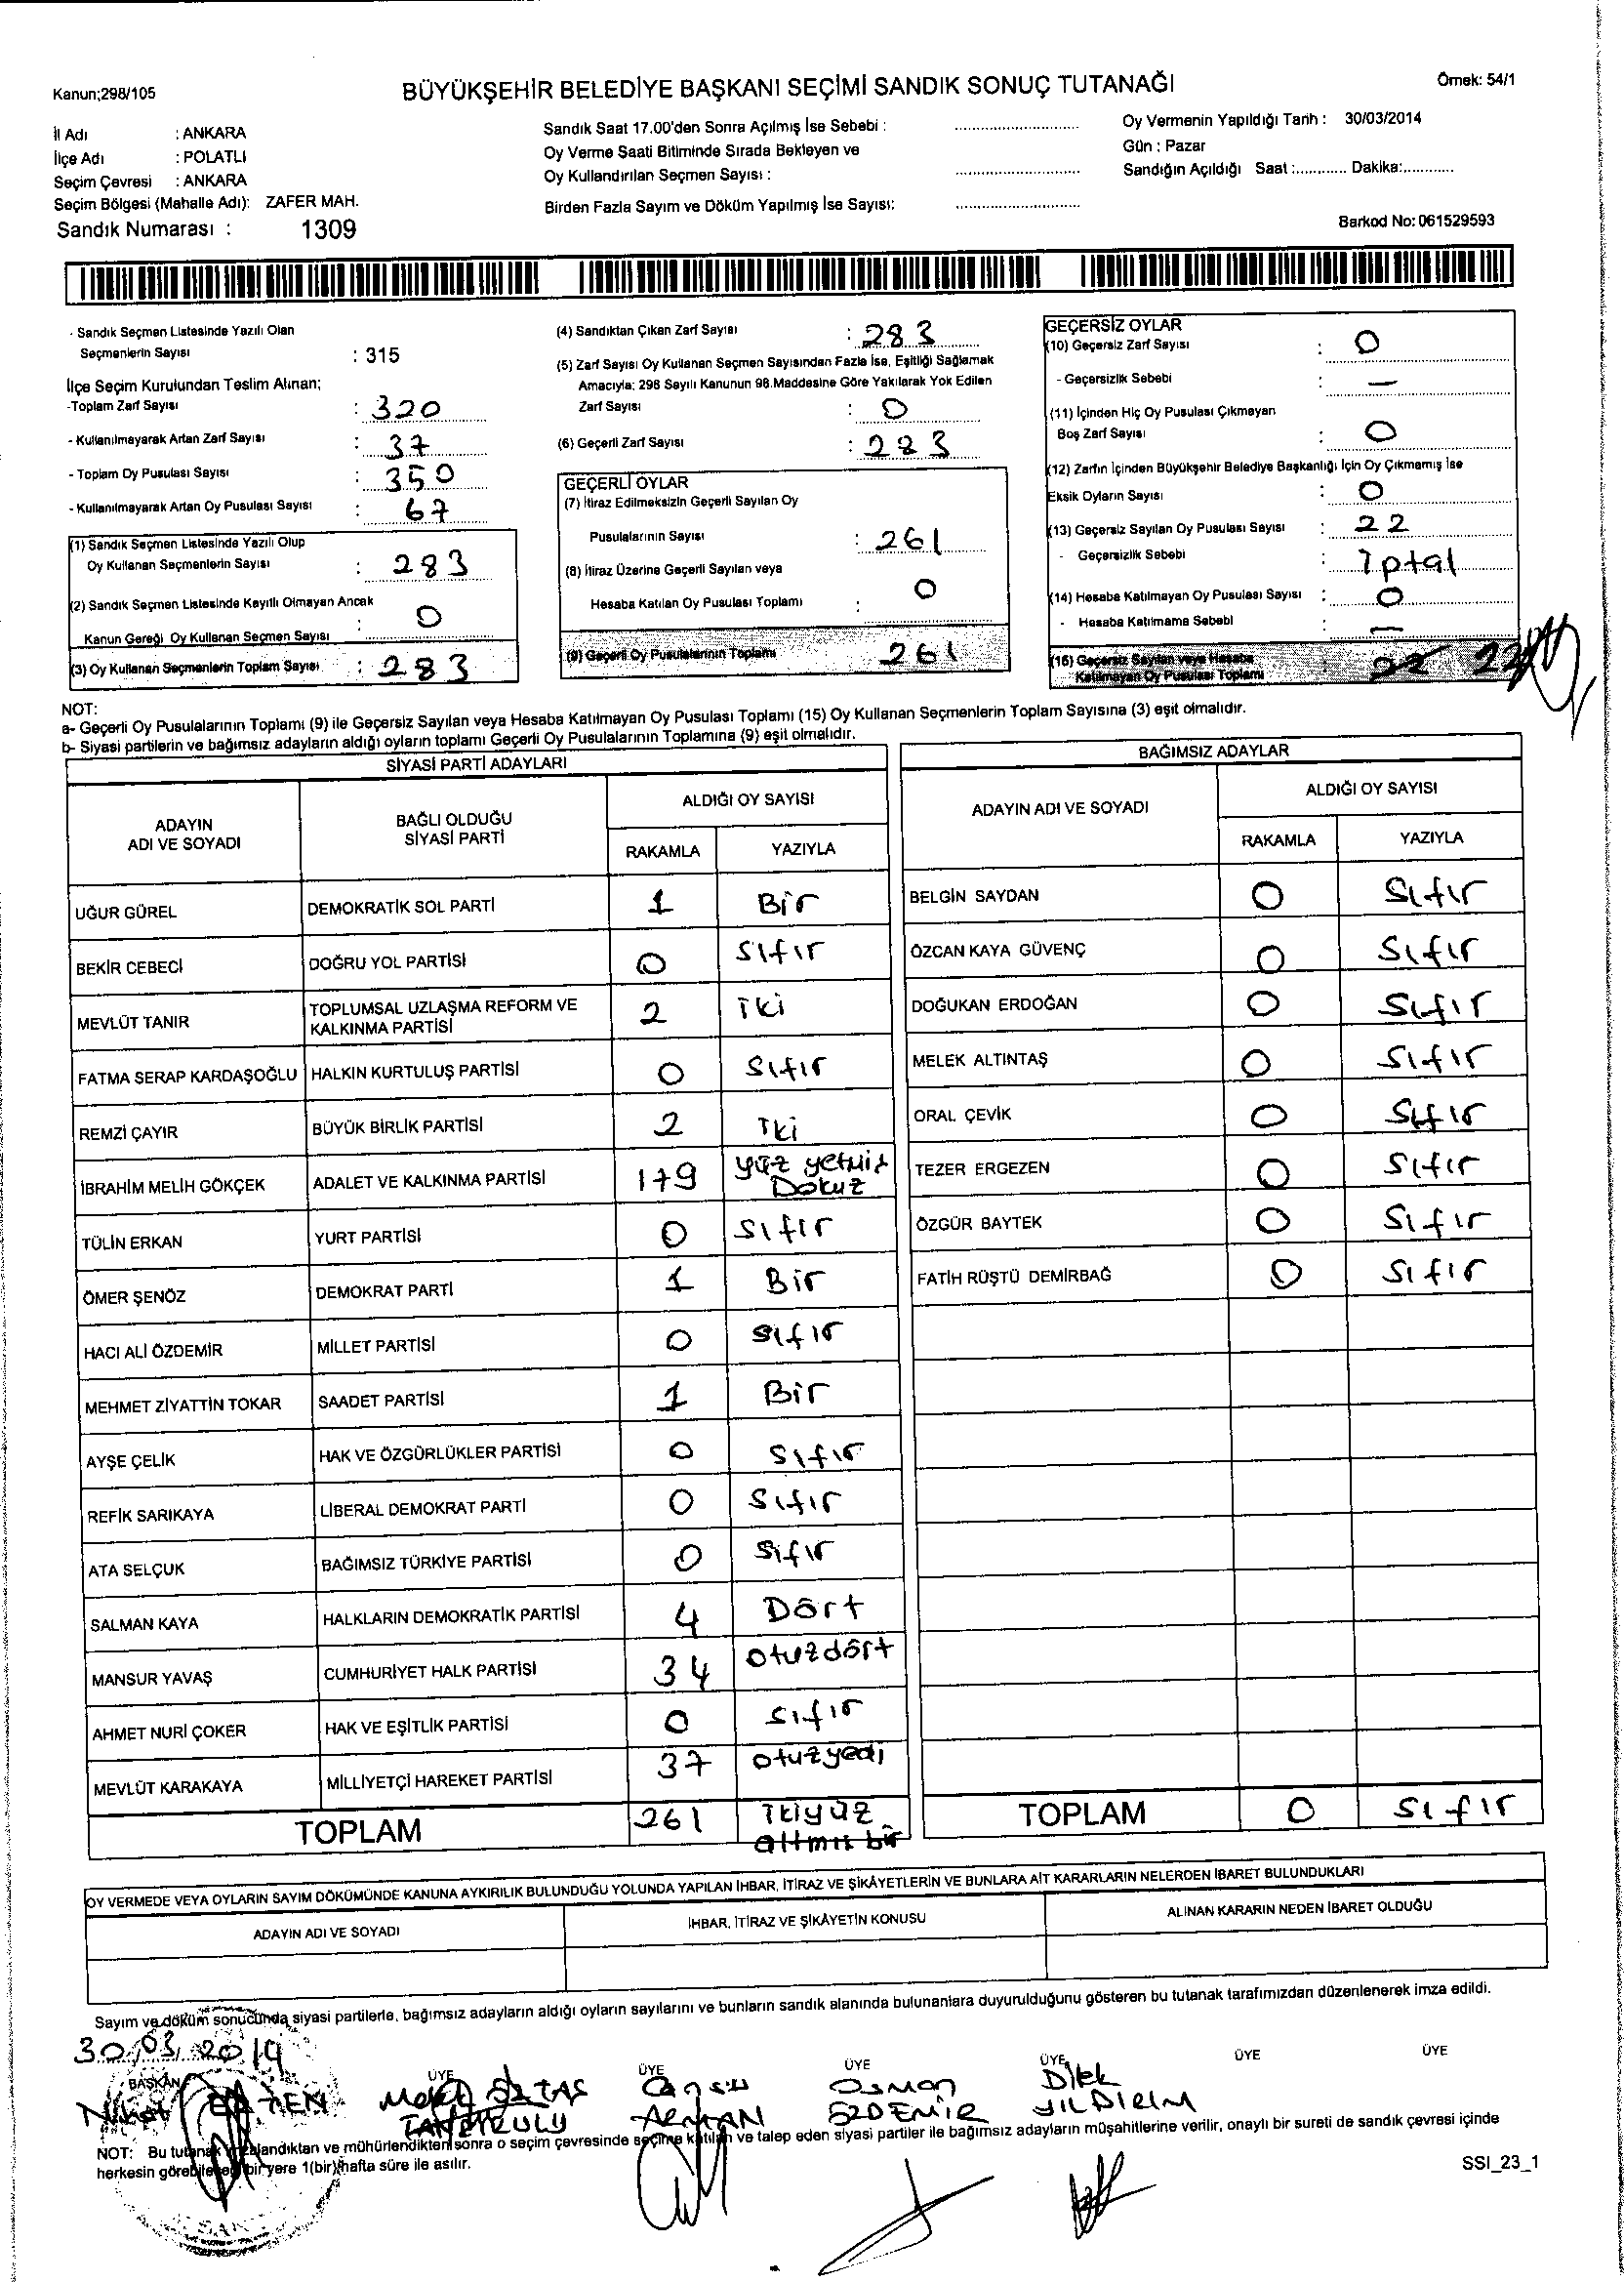 Kanun;298/105
BÜYÜKŞEHİR BELEDİYE BAŞKANI SEÇİMİ SANDIK SONUÇ TUTANAĞI
Örnek: 54/1
İl Adı : ANKARA
İlçe Adı : POLATLI
Seçim Çevresi : ANKARA
Seçim Bölgesi (Mahalle Adı): ZAFER MAH.
Sandık Numarası : 1309
Sandık Saat 17.00'den Sonra Açılmış İse Sebebi : ............................
Oy Verme Saati Bitiminde Sırada Bekleyen ve
Oy Kullandırılan Seçmen Sayısı : ............................
Birden Fazla Sayım ve Döküm Yapılmış İse Sayısı: ............................
Oy Vermenin Yapıldığı Tarih : 30/03/2014
Gün : Pazar
Sandığın Açıldığı Saat :............ Dakika:............
Barkod No: 061529593
- Sandık Seçmen Listesinde Yazılı Olan
Seçmenlerin Sayısı : 315
İlçe Seçim Kurulundan Teslim Alınan;
-Toplam Zarf Sayısı : 320
- Kullanılmayarak Artan Zarf Sayısı : 37
- Toplam Oy Pusulası Sayısı : 350
- Kullanılmayarak Artan Oy Pusulası Sayısı : 67
(1) Sandık Seçmen Listesinde Yazılı Olup
Oy Kullanan Seçmenlerin Sayısı : 283
(2) Sandık Seçmen Listesinde Kayıtlı Olmayan Ancak
Kanun Gereği Oy Kullanan Seçmen Sayısı : 0
(3) Oy Kullanan Seçmenlerin Toplam Sayısı : 283
(4) Sandıktan Çıkan Zarf Sayısı : 283
(5) Zarf Sayısı Oy Kullanan Seçmen Sayısından Fazla İse, Eşitliği Sağlamak
Amacıyla; 298 Sayılı Kanunun 98.Maddesine Göre Yakılarak Yok Edilen
Zarf Sayısı : 0
(6) Geçerli Zarf Sayısı : 283
GEÇERLİ OYLAR
(7) İtiraz Edilmeksizin Geçerli Sayılan Oy
Pusulalarının Sayısı : 261
(8) İtiraz Üzerine Geçerli Sayılan veya
Hesaba Katılan Oy Pusulası Toplamı : 0
(9) Geçerli Oy Pusulalarının Toplamı 261
GEÇERSİZ OYLAR
(10) Geçersiz Zarf Sayısı : 0
- Geçersizlik Sebebi : —
(11) İçinden Hiç Oy Pusulası Çıkmayan
Boş Zarf Sayısı : 0
(12) Zarfın İçinden Büyükşehir Belediye Başkanlığı İçin Oy Çıkmamış İse
Eksik Oyların Sayısı : 0
(13) Geçersiz Sayılan Oy Pusulası Sayısı : 22
- Geçersizlik Sebebi : İptal
(14) Hesaba Katılmayan Oy Pusulası Sayısı : 0
- Hesaba Katılmama Sebebi : —
(15) Geçersiz Sayılan veya Hesaba
Katılmayan Oy Pusulası Toplamı 22 22
NOT:
a- Geçerli Oy Pusulalarının Toplamı (9) ile Geçersiz Sayılan veya Hesaba Katılmayan Oy Pusulası Toplamı (15) Oy Kullanan Seçmenlerin Toplam Sayısına (3) eşit olmalıdır.
b- Siyasi partilerin ve bağımsız adayların aldığı oyların toplamı Geçerli Oy Pusulalarının Toplamına (9) eşit olmalıdır.
SİYASİ PARTİ ADAYLARI
ADAYIN ADI VE SOYADI BAĞLI OLDUĞU SİYASİ PARTİ ALDIĞI OY SAYISI
RAKAMLA YAZIYLA
UĞUR GÜREL DEMOKRATİK SOL PARTİ 1 Bir
BEKİR CEBECİ DOĞRU YOL PARTİSİ 0 Sıfır
MEVLÜT TANIR TOPLUMSAL UZLAŞMA REFORM VE KALKINMA PARTİSİ 2 İki
FATMA SERAP KARDAŞOĞLU HALKIN KURTULUŞ PARTİSİ 0 Sıfır
REMZİ ÇAYIR BÜYÜK BİRLİK PARTİSİ 2 İki
İBRAHİM MELİH GÖKÇEK ADALET VE KALKINMA PARTİSİ 179 yüz yetmiş Dokuz
TÜLİN ERKAN YURT PARTİSİ 0 Sıfır
ÖMER ŞENÖZ DEMOKRAT PARTİ 1 Bir
HACI ALİ ÖZDEMİR MİLLET PARTİSİ 0 Sıfır
MEHMET ZİYATTİN TOKAR SAADET PARTİSİ 1 Bir
AYŞE ÇELİK HAK VE ÖZGÜRLÜKLER PARTİSİ 0 Sıfır
REFİK SARIKAYA LİBERAL DEMOKRAT PARTİ 0 Sıfır
ATA SELÇUK BAĞIMSIZ TÜRKİYE PARTİSİ 0 Sıfır
SALMAN KAYA HALKLARIN DEMOKRATİK PARTİSİ 4 Dört
MANSUR YAVAŞ CUMHURİYET HALK PARTİSİ 34 otuzdört
AHMET NURİ ÇOKER HAK VE EŞİTLİK PARTİSİ 0 Sıfır
MEVLÜT KARAKAYA MİLLİYETÇİ HAREKET PARTİSİ 37 otuzyedi
TOPLAM 261 İkiyüz altmış bir
BAĞIMSIZ ADAYLAR
ADAYIN ADI VE SOYADI ALDIĞI OY SAYISI
RAKAMLA YAZIYLA
BELGİN SAYDAN 0 Sıfır
ÖZCAN KAYA GÜVENÇ 0 Sıfır
DOĞUKAN ERDOĞAN 0 Sıfır
MELEK ALTINTAŞ 0 Sıfır
ORAL ÇEVİK 0 Sıfır
TEZER ERGEZEN 0 Sıfır
ÖZGÜR BAYTEK 0 Sıfır
FATİH RÜŞTÜ DEMİRBAĞ 0 Sıfır
TOPLAM 0 Sıfır
OY VERMEDE VEYA OYLARIN SAYIM DÖKÜMÜNDE KANUNA AYKIRILIK BULUNDUĞU YOLUNDA YAPILAN İHBAR, İTİRAZ VE ŞİKÂYETLERİN VE BUNLARA AİT KARARLARIN NELERDEN İBARET BULUNDUKLARI
ADAYIN ADI VE SOYADI İHBAR, İTİRAZ VE ŞİKÂYETİN KONUSU ALINAN KARARIN NEDEN İBARET OLDUĞU
Sayım ve döküm sonucunda siyasi partilerle, bağımsız adayların aldığı oyların sayılarını ve bunların sandık alanında bulunanlara duyurulduğunu gösteren bu tutanak tarafımızdan düzenlenerek imza edildi.
30/03/2014
BAŞKAN ÜYE ÜYE ÜYE ÜYE ÜYE ÜYE
Osman Dilek
ÖZDEMİR YILDIRIM
NOT: Bu tutanak imzalandıktan ve mühürlendikten sonra o seçim çevresinde seçime katılan ve talep eden siyasi partiler ile bağımsız adayların müşahitlerine verilir, onaylı bir sureti de sandık çevresi içinde
herkesin görebileceği bir yere 1(bir) hafta süre ile asılır.
SSI_23_1